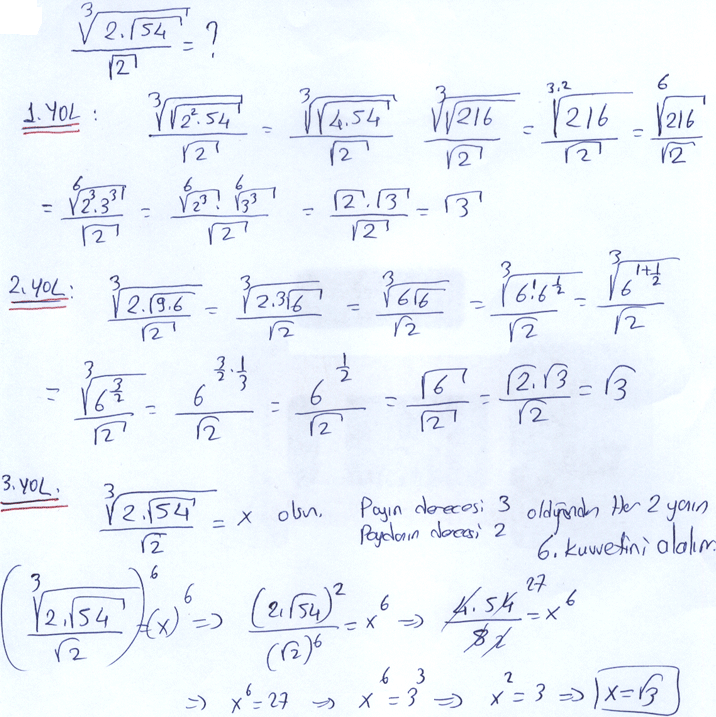 ∛(2.√54) / √2 = ?
1.YOL : ∛(√(2².54)) / √2 = ∛(√(4.54)) / √2  ∛(√216) / √2 = ³·²√216 / √2 = ⁶√216 / √2
= ⁶√(2³.3³) / √2 = ⁶√(2³) . ⁶√(3³) / √2 = √2.√3 / √2 = √3
2.YOL: ∛(2.√9.6) / √2 = ∛(2.3√6) / √2 = ∛(6√6) / √2 = ∛(6¹.6^(1/2)) / √2 = ∛(6^(1+1/2)) / √2
= ∛(6^(3/2)) / √2 = 6^(3/2 . 1/3) / √2 = 6^(1/2) / √2 = √6 / √2 = √2.√3 / √2 = √3
3.YOL. ∛(2.√54) / √2 = x olsun. Payın derecesi 3
Paydanın derecesi 2 olduğundan Her 2 yanın
6. kuvvetini alalım.
(∛(2.√54) / √2)⁶ = (x)⁶ => (2.√54)² / (√2)⁶ = x⁶ => 4.54 27 / 8 2 = x⁶
=> x⁶ = 27 => x⁶ = 3³ => x² = 3 => x = √3